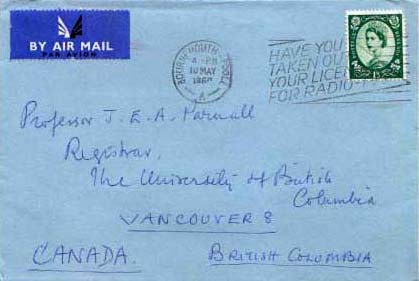 BY AIR MAIL
PAR AVION
BOURNEMOUTH POOLE
4 - PM
10 MAY
- A -
HAVE YOU
TAKEN OUT
YOUR LICEN
FOR RADIO-
Professor J. E. A. Parnall
Registrar,
The University of British
Columbia
VANCOUVER 8
CANADA.
BRITISH COLUMBIA